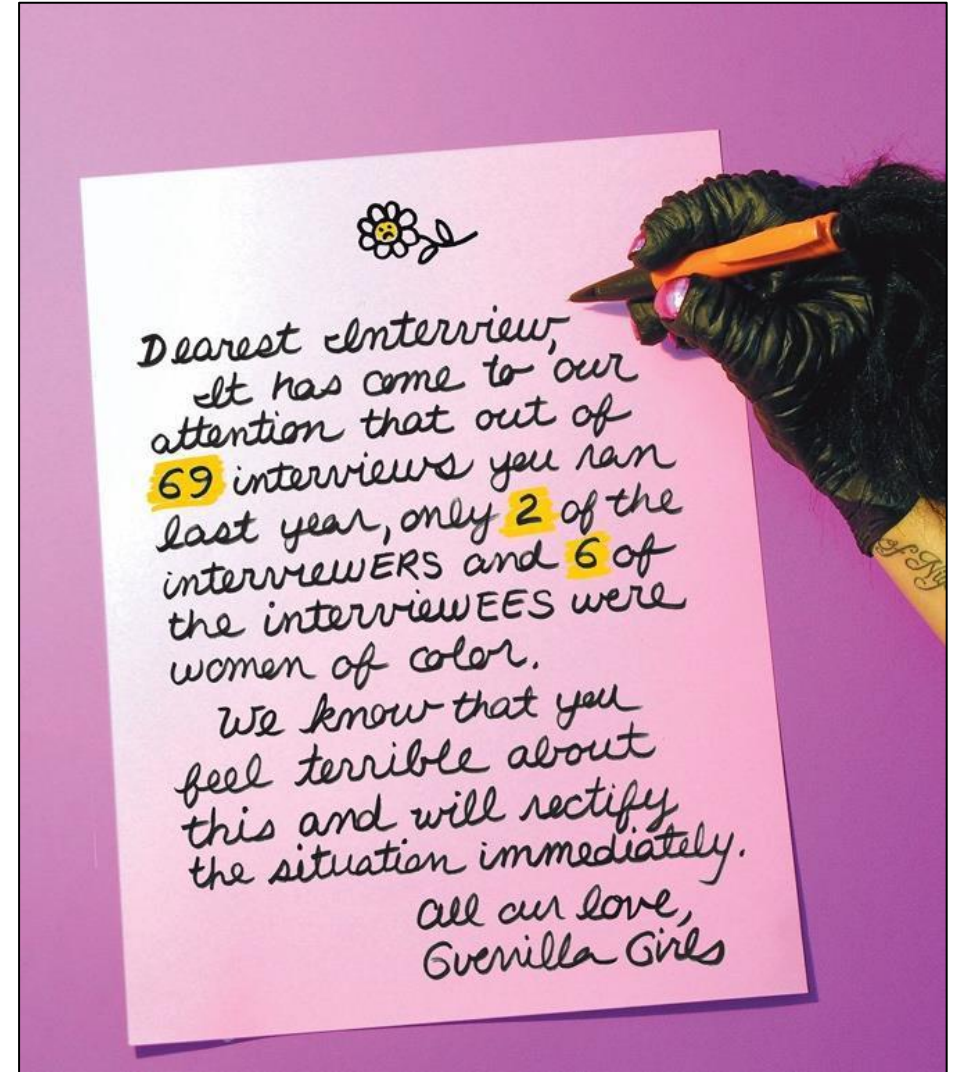 Dearest Interview,
It has come to our
attention that out of
69 interviews you ran
last year, only 2 of the
interviewERS and 6 of
the interviewEES were
women of color.
We know that you
feel terrible about
this and will rectify
the situation immediately.
all our love,
Guerrilla Girls
of Ny